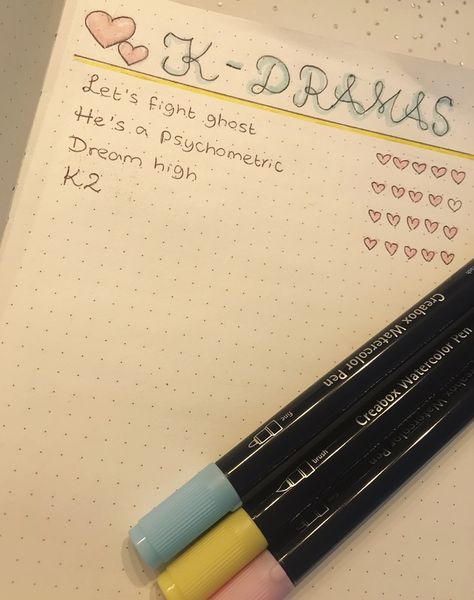 K-DRAMAS
Let's fight ghost
He's a psychometric
Dream high
K2
Creabox Watercolor Pen
fine
Creabox Watercolor Pen
brush
Watercolor Pen